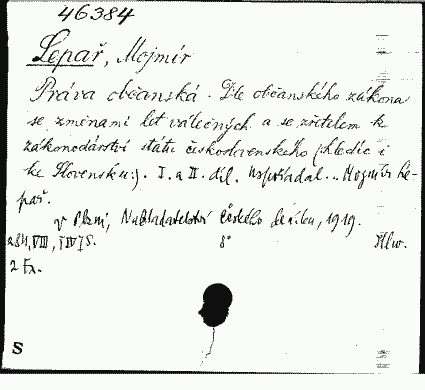 46384
Lepař, Mojmír
Práva občanská. Dle občanského zákona
se změnami let válečných a se zřetelem k
zákonodárství státu československého (hledíc i
ke Slovensku:). I. a II. díl. Uspořádal... Mojmír Le-
pař.
v Plzni, Nakladatelství Českého deníku, 1919.
VIII, S. 8°
2 Ex.
S